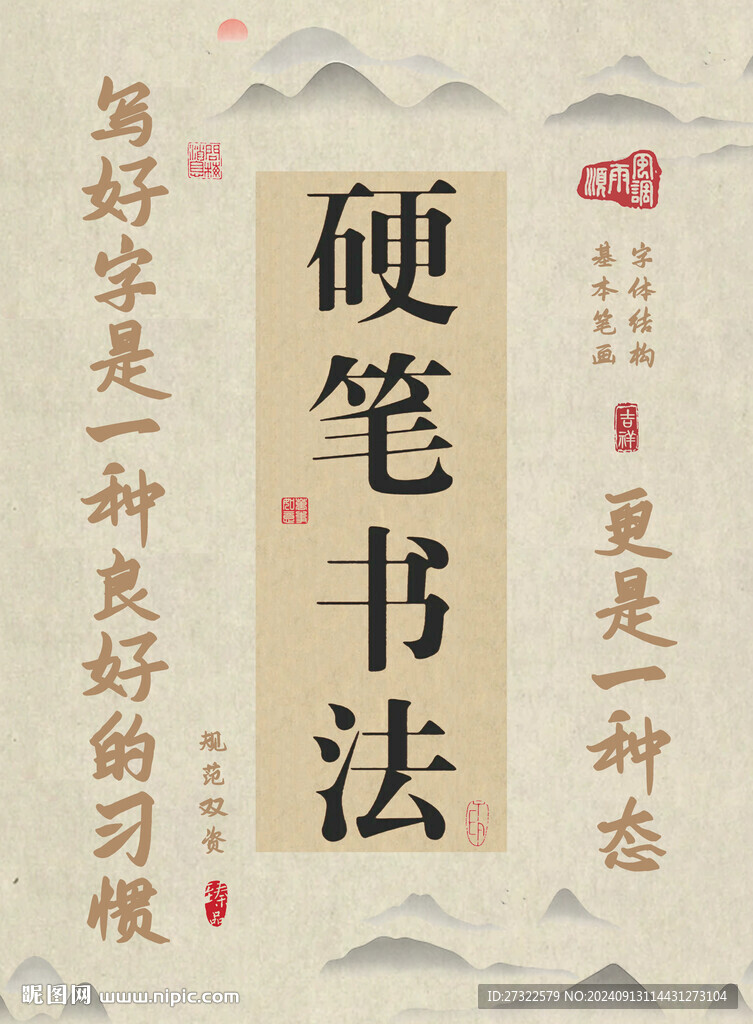 硬笔书法
写好字是一种良好的习惯
更是一种态
字体结构
基本笔画
规范双资
風調
雨
順
吉祥
昵图网 www.nipic.com
ID:27322579 NO:20240913114431273104